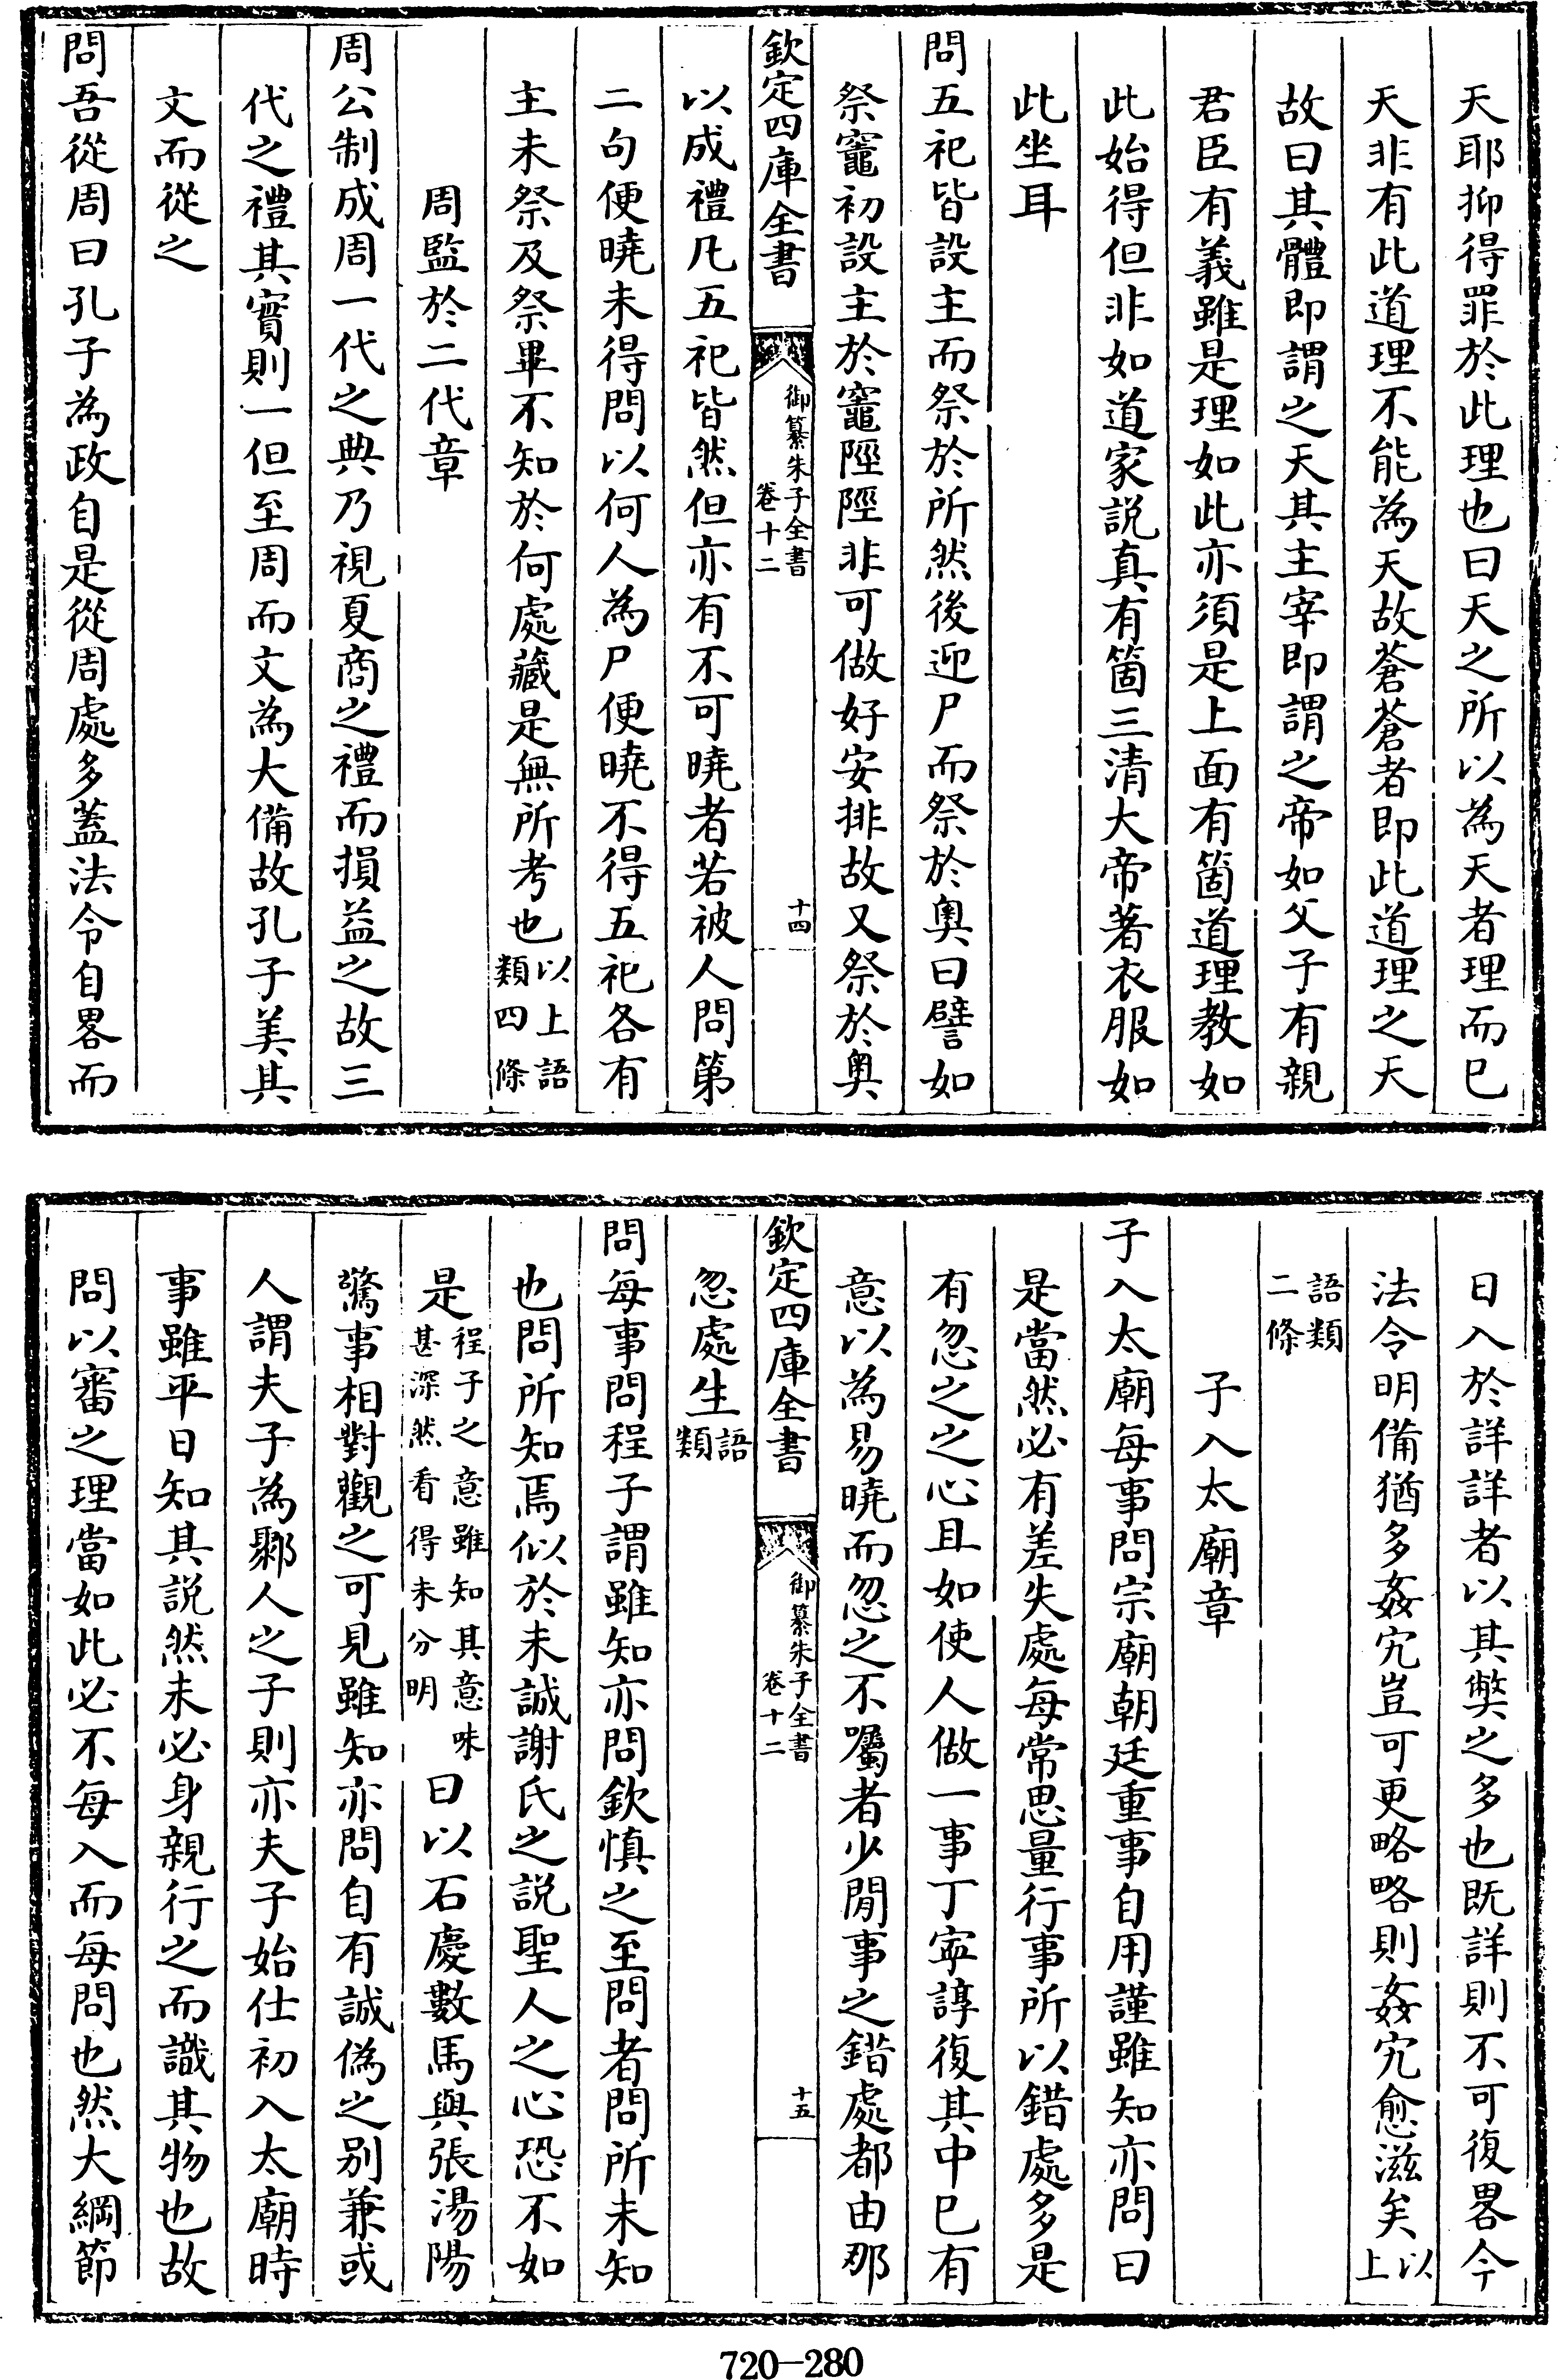 天耶抑得罪於此理也曰天之所以為天者理而已
天非有此道理不能為天故蒼蒼者即此道理之天
故曰其體即謂之天其主宰即謂之帝如父子有親
君臣有義雖是理如此亦須是上面有箇道理教如
此始得但非如道家説真有箇三清大帝著衣服如
此坐耳
問五祀皆設主而祭於所然後迎尸而祭於奧曰譬如
祭竈初設主於竈陘陘非可做好安排故又祭於奧
欽定四庫全書
御纂朱子全書
卷十二
十四
以成禮凡五祀皆然但亦有不可曉者若被人問第
二句便曉未得問以何人為尸便曉不得五祀各有
主未祭及祭畢不知於何處藏是無所考也以上語
類四條
周監於二代章
周公制成周一代之典乃視夏商之禮而損益之故三
代之禮其實則一但至周而文為大備故孔子美其
文而從之
問吾從周曰孔子為政自是從周處多蓋法令自畧而
日入於詳詳者以其獘之多也既詳則不可復畧今
法令明備猶多姦宄豈可更略略則姦宄愈滋矣以
上
語類
二條
子入太廟章
子入太廟每事問宗廟朝廷重事自用謹雖知亦問曰
是當然必有差失處每常思量行事所以錯處多是
有忽之之心且如使人做一事丁寧諄復其中已有
意以為易曉而忽之不囑者少閒事之錯處都由那
欽定四庫全書
御纂朱子全書
卷十二
十五
忽處生語
類
問每事問程子謂雖知亦問欽慎之至問者問所未知
也問所知焉似於未誠謝氏之説聖人之心恐不如
是程子之意雖知其意味
甚深然看得未分明
曰以石慶數馬與張湯陽
驚事相對觀之可見雖知亦問自有誠偽之别兼或
人謂夫子為鄹人之子則亦夫子始仕初入太廟時
事雖平日知其説然未必身親行之而識其物也故
問以審之理當如此必不每入而每問也然大綱節
720-280